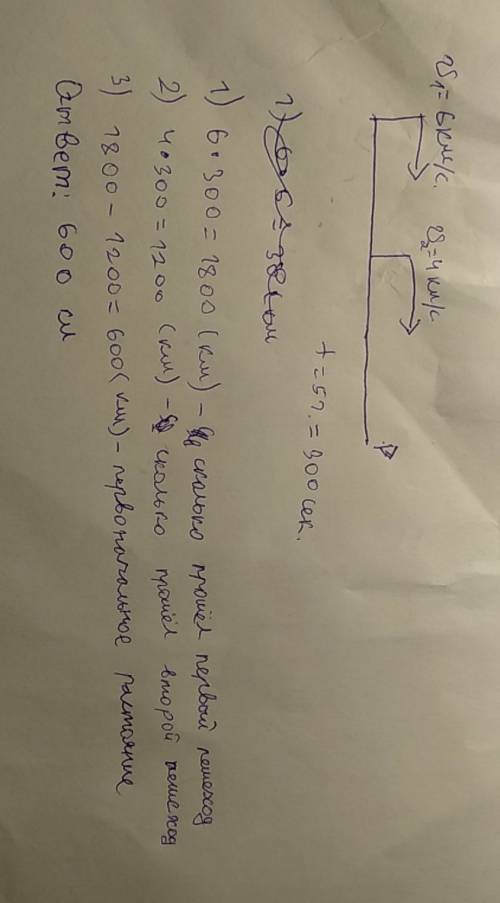 V₁=6км/с. V₂=4км/с
t=5ч.=300сек.
1) 6·300=1800(км)- сколько прошёл первый пешеход
2) 4·300=1200(км)- сколько прошёл второй пешеход
3) 1800-1200=600(км)-первоначальное растояние
Ответ: 600 см